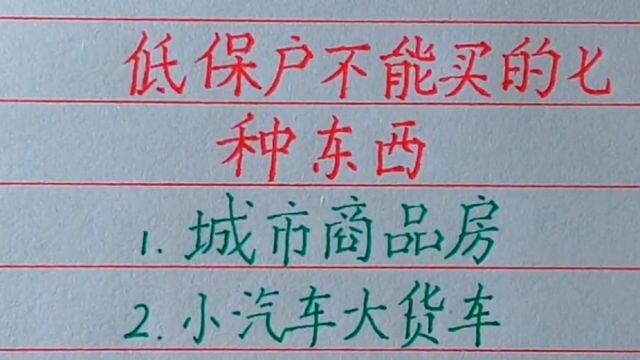 低保户不能买的七
种东西
1. 城市商品房
2. 小汽车大货车